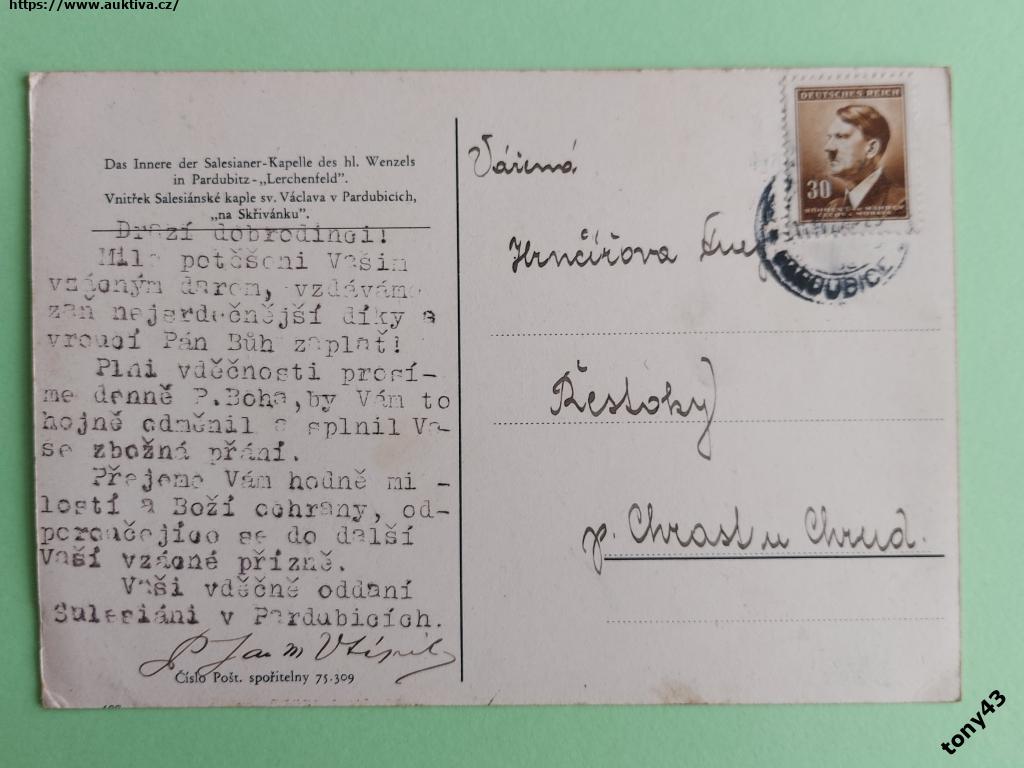 https://www.auktiva.cz/
Das Innere der Salesianer-Kapelle des hl. Wenzels
in Pardubitz-„Lerchenfeld".
Vnitřek Salesiánské kaple sv. Václava v Pardubicích,
„na Skřivánku".
Drazí dobrodinci!
Mile potěšeni Vaším
vzácným darem, vzdáváme
zaň nejsrdečnější díky a
vroucí Pán Bůh zaplať!
Plni vděčnosti prosí-
me denně P.Boha,by Vám to
hojně odměnil a splnil Va-
še zbožná přání.
Přejeme Vám hodně mi -
lostí a Boží ochrany, od-
poroučejíce se do další
Vaší vzácné přízně.
Vaši vděčně oddaní
Salesiáni v Pardubicích.
P Jan M
Číslo Pošt. spořitelny 75.309
DEUTSCHES REICH
30
BÖHMEN UND MÄHREN
ČECHY A MORAVA
PARDUBICE
Vážená
Hrnčířova
Řestoky
p. Chrast u Chrud.
tony43